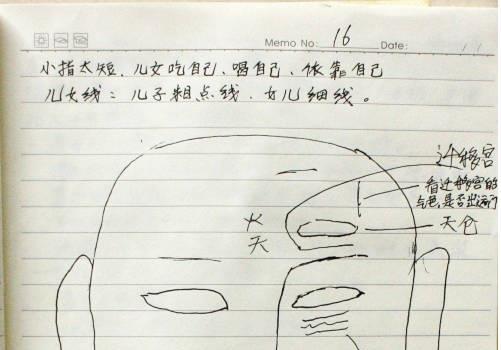 Memo No: 16 Date:
小指太短、儿女吃自己、喝自己、依靠自己
儿女线：儿子粗点线、女儿细线。
迁移宫
看迁移宫的
气色,是否出远门
天仓
天